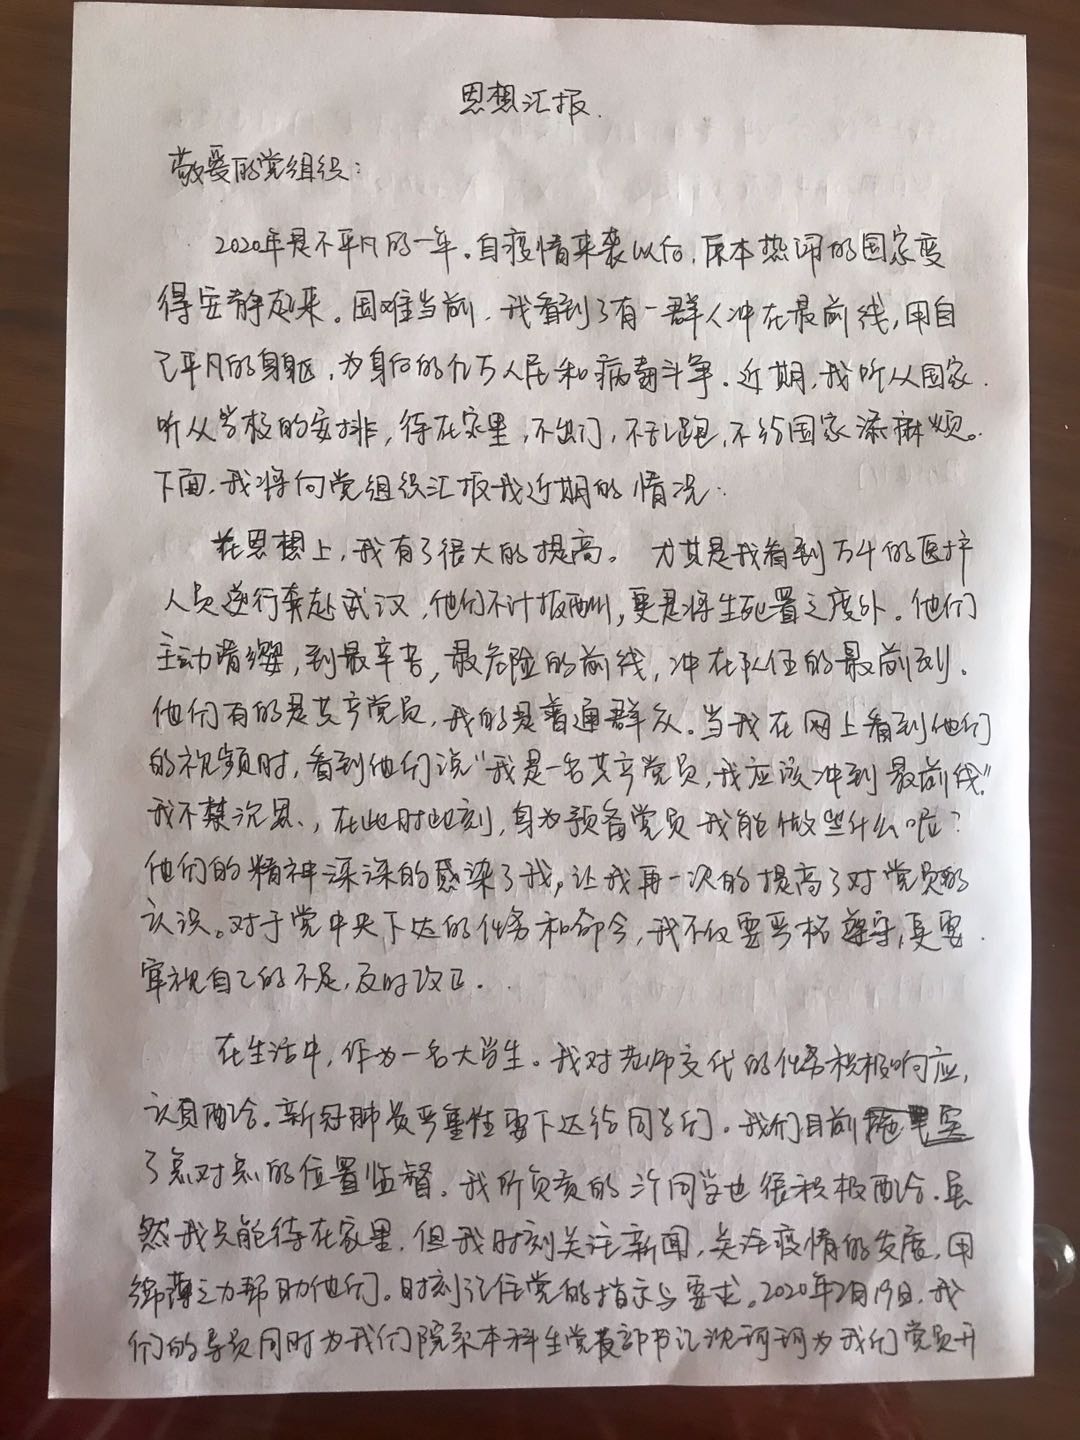 思想汇报.
敬爱的党组织：
2020年是不平凡的一年。自疫情来袭以后,原本热闹的国家变
得安静起来。困难当前,我看到了有一群人冲在最前线,用自
己平凡的身躯,为身后的亿万人民和病毒斗争.近期,我听从国家.
听从学校的安排,待在家里,不出门,不乱跑,不给国家添麻烦。
下面,我将向党组织汇报我近期的情况:
在思想上,我有了很大的提高。尤其是我看到万千的医护
人员逆行奔赴武汉,他们不计报酬,更是将生死置之度外.他们
主动请缨,到最辛苦,最危险的前线,冲在队伍的最前列.
他们有的是共产党员,我的是普通群众.当我在网上看到他们
的视频时,看到他们说"我是一名共产党员,我应该冲到最前线."
我不禁沉思,在此时此刻,身为预备党员我能做些什么呢?
他们的精神深深的感染了我,让我再一次的提高了对党员的
认识。对于党中央下达的任务和命令,我不仅要严格遵守,更要
审视自己的不足,及时改正.
在生活中,作为一名大学生。我对老师交代的任务积极响应,
认真配合.新冠肺炎严重性要下达给同学们.我们目前 实
了点对点的位置监督.我所负责的许同学也很积极配合.虽
然我只能待在家里,但我时刻关注新闻,关注疫情的发展,用
绵薄之力帮助他们。时刻记住党的指示与要求。2020年2月19日,我
们的导员同时为我们院系本科生党支部书记沈珂珂为我们党员开